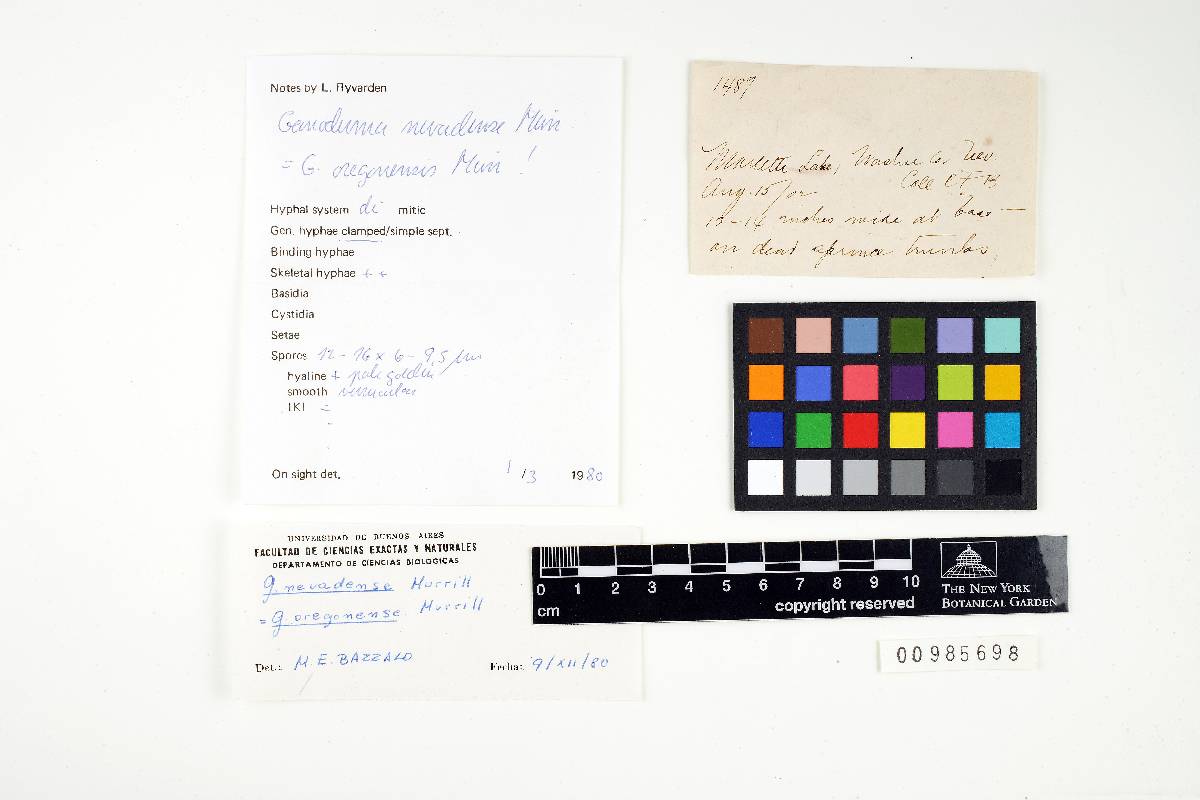 Notes by L. Ryvarden
Ganoderma nevadense Murr
= G. oregonensis Murr !
Hyphal system di mitic
Gen. hyphae clamped/simple sept.
Binding hyphae
Skeletal hyphae + +
Basidia
Cystidia
Setae
Spores 12 - 16 x 6 - 9,5 µm
hyaline + pale golden
smooth verruculose
IKI -
On sight det. 1 /3 1980
1487
Marlette Lake, Washoe Co. Nev.
Aug. 15/02 Coll C F B
12-14 inches wide at base —
on dead spruce trunks
UNIVERSIDAD DE BUENOS AIRES
FACULTAD DE CIENCIAS EXACTAS Y NATURALES
DEPARTAMENTO DE CIENCIAS BIOLOGICAS
G. nevadense Murrill
= G. oregonense Murrill
Det.: M. E. BAZZALO Fecha: 9/XII/80
0 1 2 3 4 5 6 7 8 9 10
cm copyright reserved
THE NEW YORK
BOTANICAL GARDEN
00985698